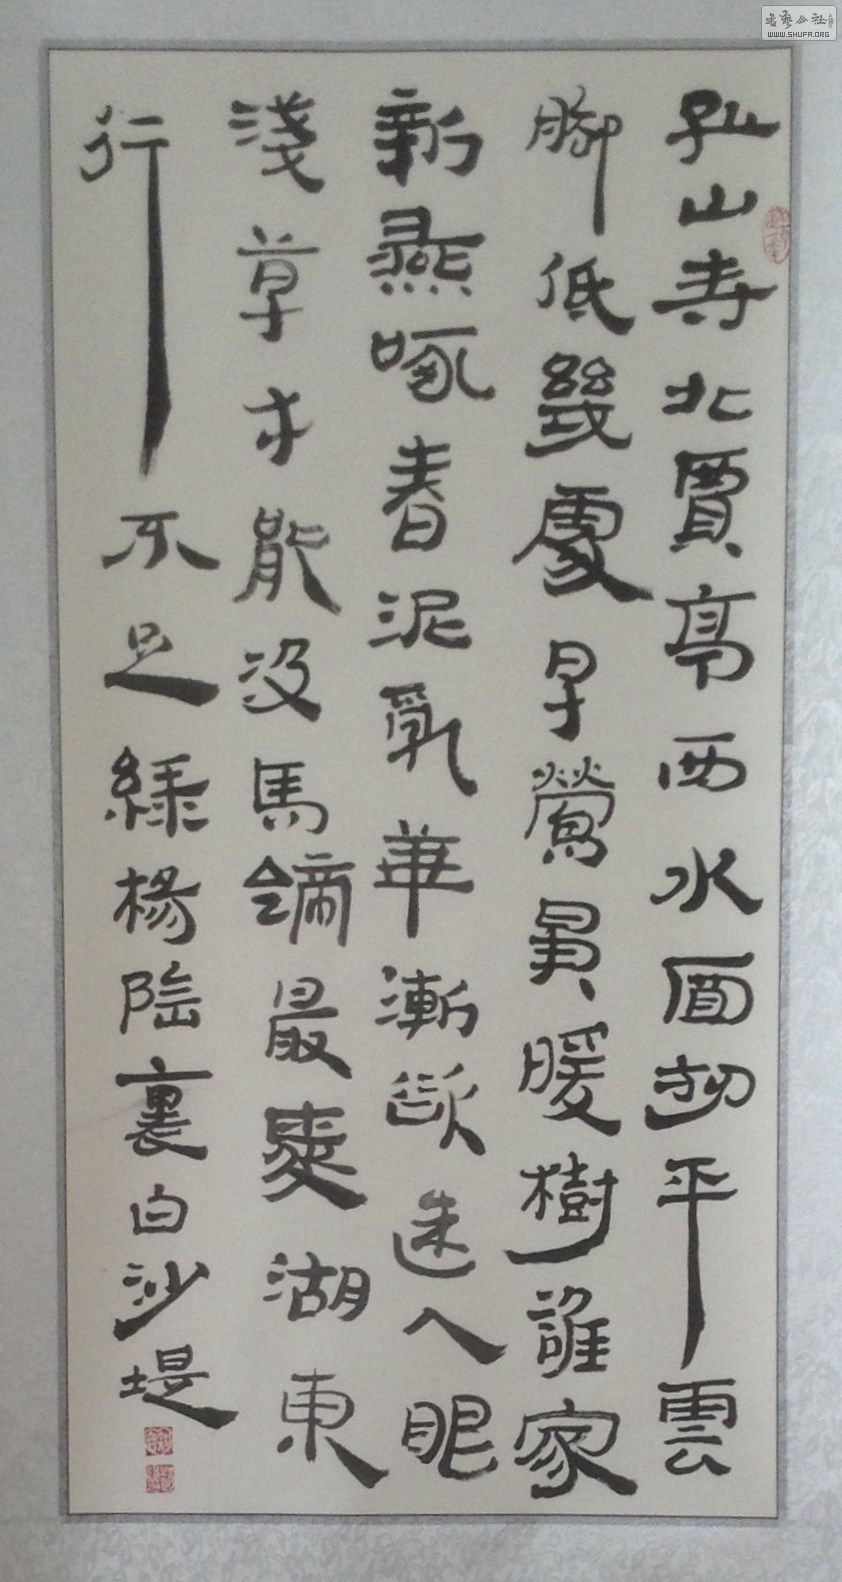 書藝公社
WWW.SHUFA.ORG
孤山寺北賈亭西水面初平雲
脚低幾處早鶯爭暖樹誰家
新燕啄春泥亂華漸欲迷人眼
淺草才能沒馬蹄最愛湖東
行不足綠楊陰裏白沙堤